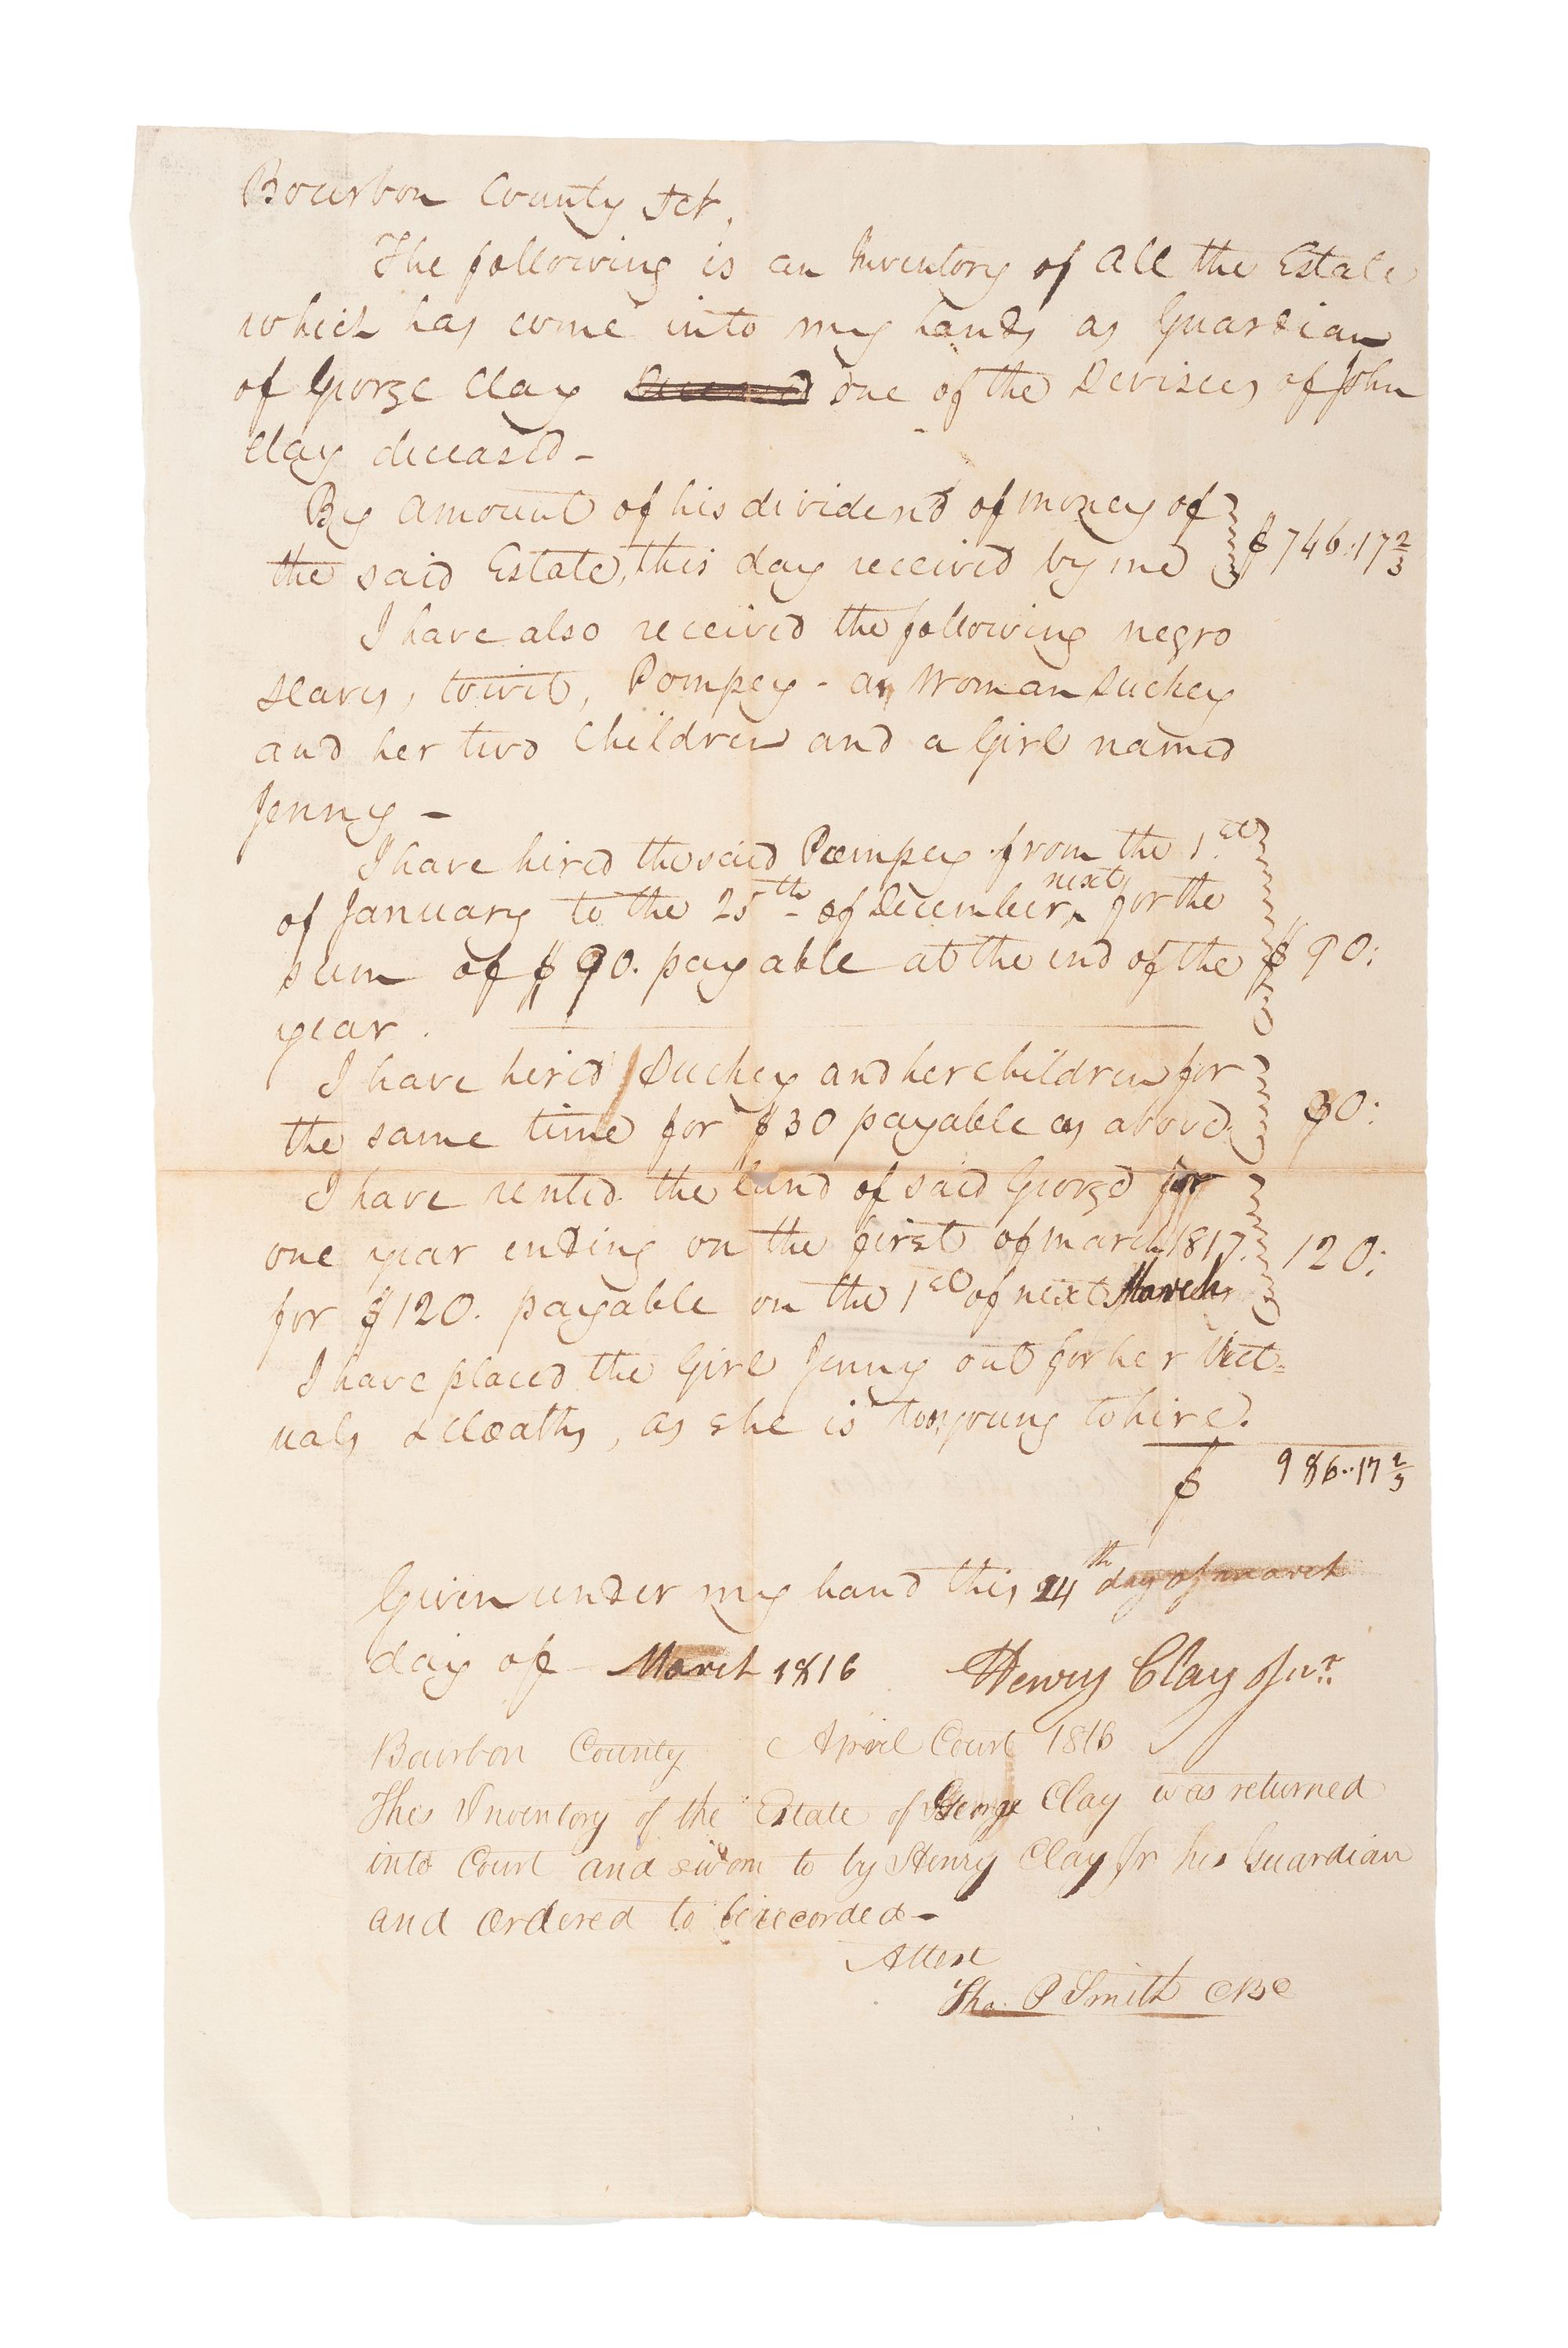 Bourbon County Sct,
The following is an Inventory of all the Estate
which has come into my hands as Guardian
of George Clay one of the Devisees of John
Clay deceased -
By amount of his dividend of money of
the said Estate, this day received by me $746..17 2/3
I have also received the following negro
slaves, towit, Pompey - a Woman Suckey
and her two Children and a Girl named
Jenny -
I have hired the said Pompey from the 1st
of January to the 25th of December next for the
sum of $90. payable at the end of the $90:
year.
I have hired Suckey and her children for
the same time for $30 payable as above 30:
I have rented the land of said George for
one year ending on the first of march 1817. 120:
for $120. payable on the 1st of next March
I have placed the Girl Jenny out for her Vict=
uals & Cloaths, as she is too young to hire.
$ 986..17 2/3
Given under my hand this 24th day of march
day of March 1816 Henry Clay Junr.
Bourbon County April Court 1816
This Inventory of the Estate of George Clay was returned
into Court and sworn to by Henry Clay Jr his Guardian
and ordered to be recorded -
Attest
Tho. P Smith CBC